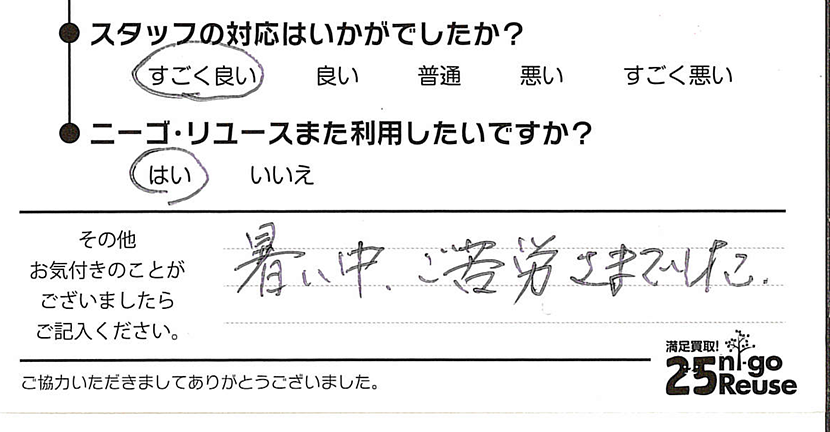 スタッフの対応はいかがでしたか？
すごく良い 良い 普通 悪い すごく悪い
ニーゴ・リユースまた利用したいですか？
はい いいえ
その他
お気付きのことが
ございましたら
ご記入ください。
暑い中、ご苦労さまでした.
ご協力いただきましてありがとうございました。
満足買取!
25 ni-go
Reuse